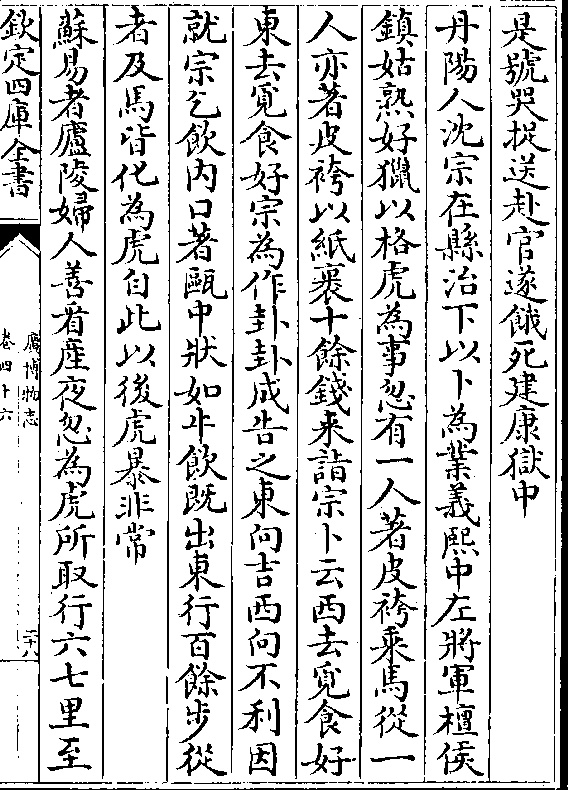 是號哭捉送赴官遂餓死建康獄中
丹陽人沈宗在縣治下以卜為業義熙中左將軍檀侯
鎮姑熟好獵以格虎為事忽有一人著皮袴乘馬從一
人亦著皮袴以紙裹十餘錢来詣宗卜云西去覓食好
東去覓食好宗為作卦卦成告之東向吉西向不利因
就宗乞飲内口著甌中狀如牛飲既出東行百餘步從
者及馬皆化為虎自此以後虎暴非常
蘇易者廬陵婦人善看產夜忽為虎所取行六七里至
欽定四庫全書
廣博物志
卷四十六
二十八